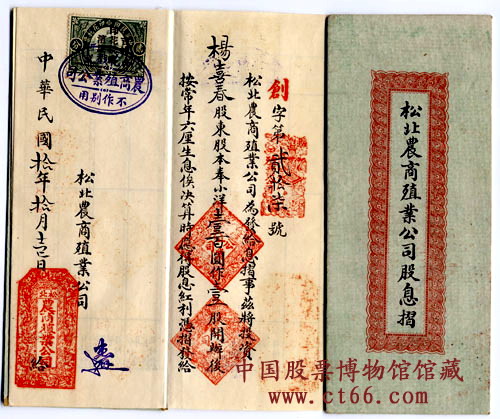 松北農商殖業公司股息摺
創字第貳拾柒號
松北農商殖業公司為發給息摺事茲將投資
楊喜春股東股本奉小洋壹百圓作壹股開辦後
按常年六厘生息俟決算時應得股息紅利憑摺發給
松北農商殖業公司
中華民國拾年拾月十二日 給
農商殖業公司
不作別用
中国股票博物馆馆藏
www.ct66.com